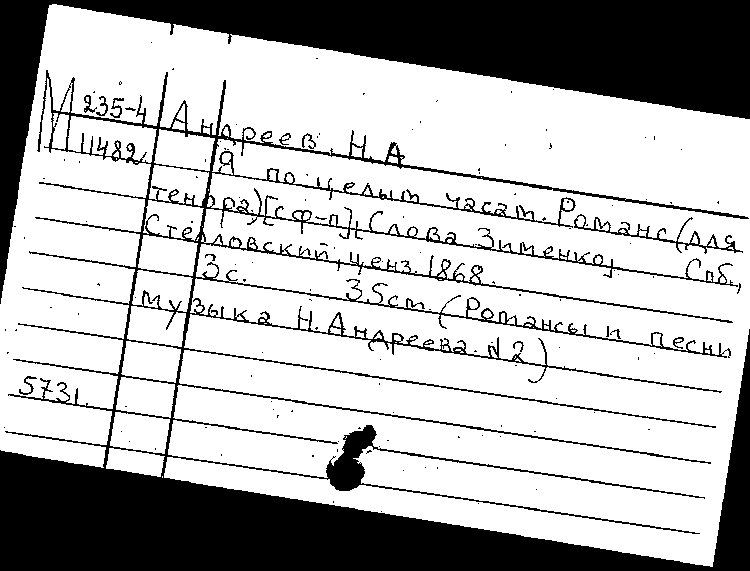 М 235-4
11482
Андреев. Н.А
Я по целым часам. Романс (для
тенора) [с ф-п], Слова Зименко, Спб.,
Стелловский, ценз. 1868.
3с. 35cm (Романсы и песни
музыка Н. Андреева. №2)
5731.